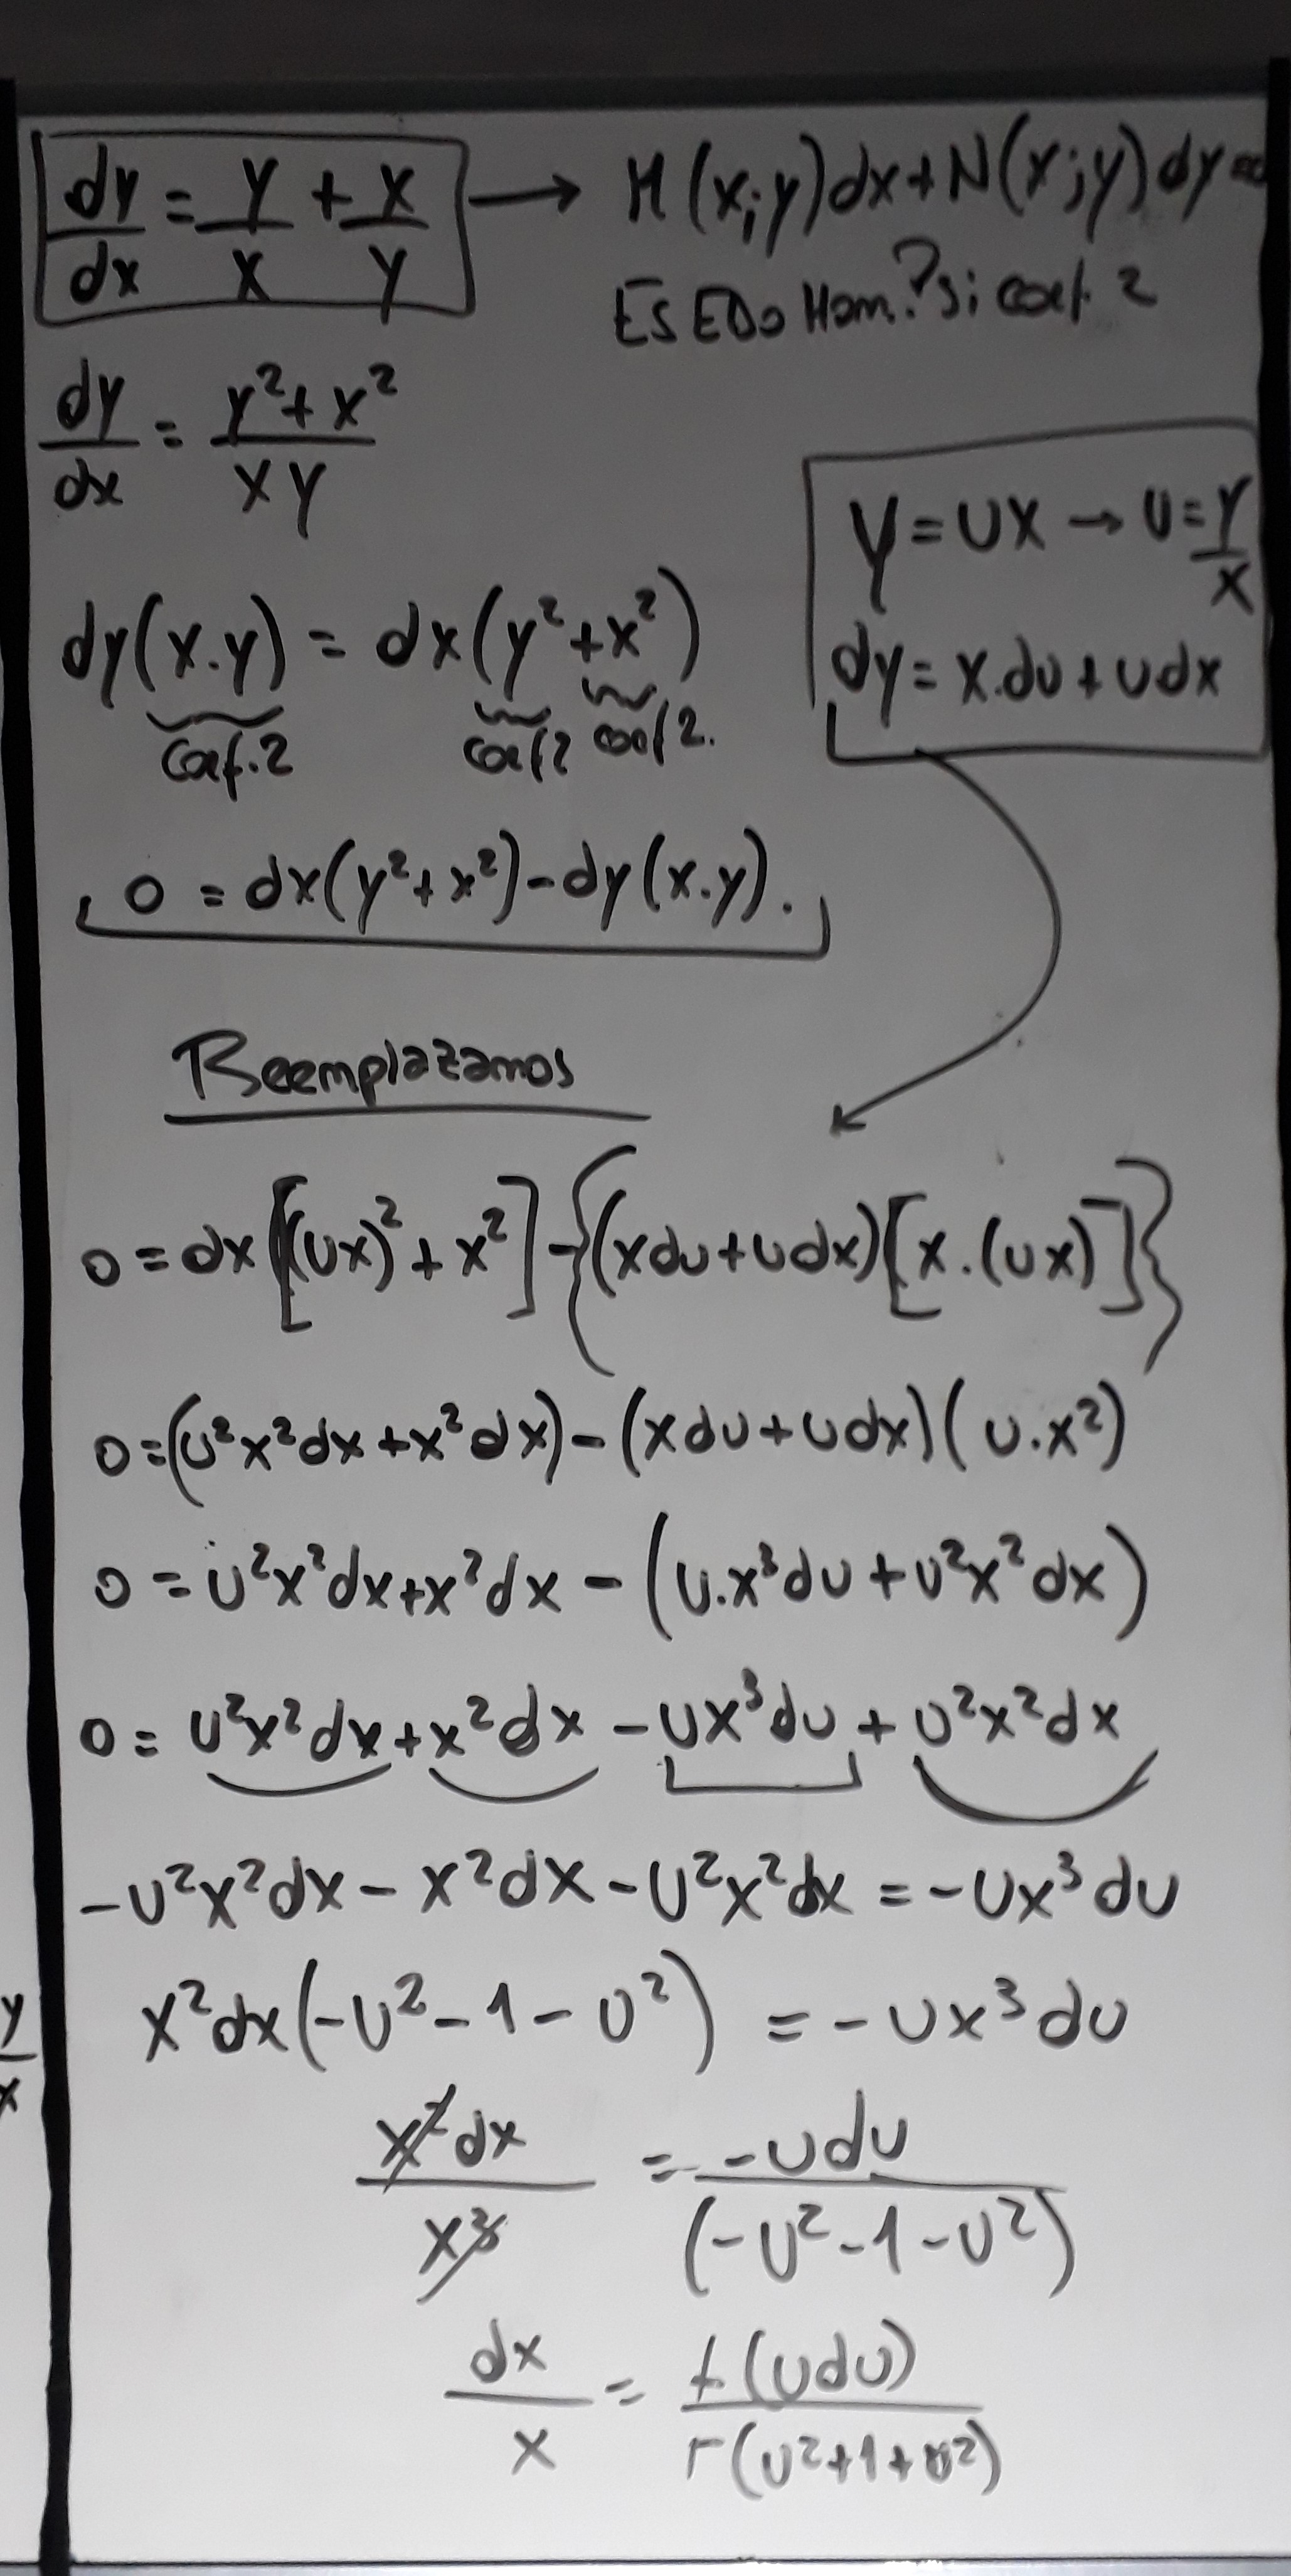 dy/dx = y/x + x/y → M(x;y)dx+N(x;y)dy=0
Es EDO Hom.? Si coef. 2
dy/dx = (y²+x²)/(xy)
y=ux → u=y/x
dy(x.y) = dx(y²+x²)
dy= x.du+udx
coef.2 coef2 coef2.
0 = dx(y²+x²)-dy(x.y).
Reemplazamos
0=dx[(ux)²+x²]-{(xdu+udx)[x.(ux)]}
0=(u²x²dx+x²dx)-(xdu+udx)(u.x²)
0=u²x²dx+x²dx-(u.x³du+u²x²dx)
0=u²x²dx+x²dx-ux³du+u²x²dx
-u²x²dx-x²dx-u²x²dx=-ux³du
x²dx(-u²-1-u²)=-ux³du
x²dx/x³ = -udu/(-u²-1-u²)
dx/x = -(udu)/-(u²+1+u²)
y/x